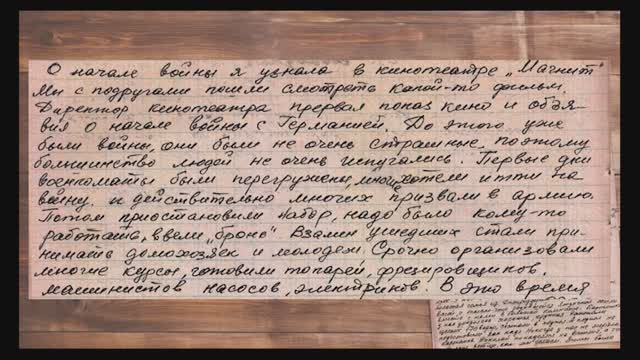 О начале войны я узнала в кинотеатре „Магнит"
Мы с подругами пошли смотреть какой-то фильм.
Директор кинотеатра прервал показ кино и объя-
вил о начале войны с Германией. До этого уже
были войны, они были не очень страшные, поэтому
большинство людей не очень испугались. Первые дни
военкоматы были перегружены, многие хотели идти на
войну. и действительно многих призвали в армию.
Потом приостановили набор, надо было кому-то
работать, ввели „бронь" Взамен ушедших стали при-
нимать домохозяек и молодежь. Срочно организовали
многие курсы, готовили токарей, фрезировщиков,
машинистов насосов, электриков. В это время